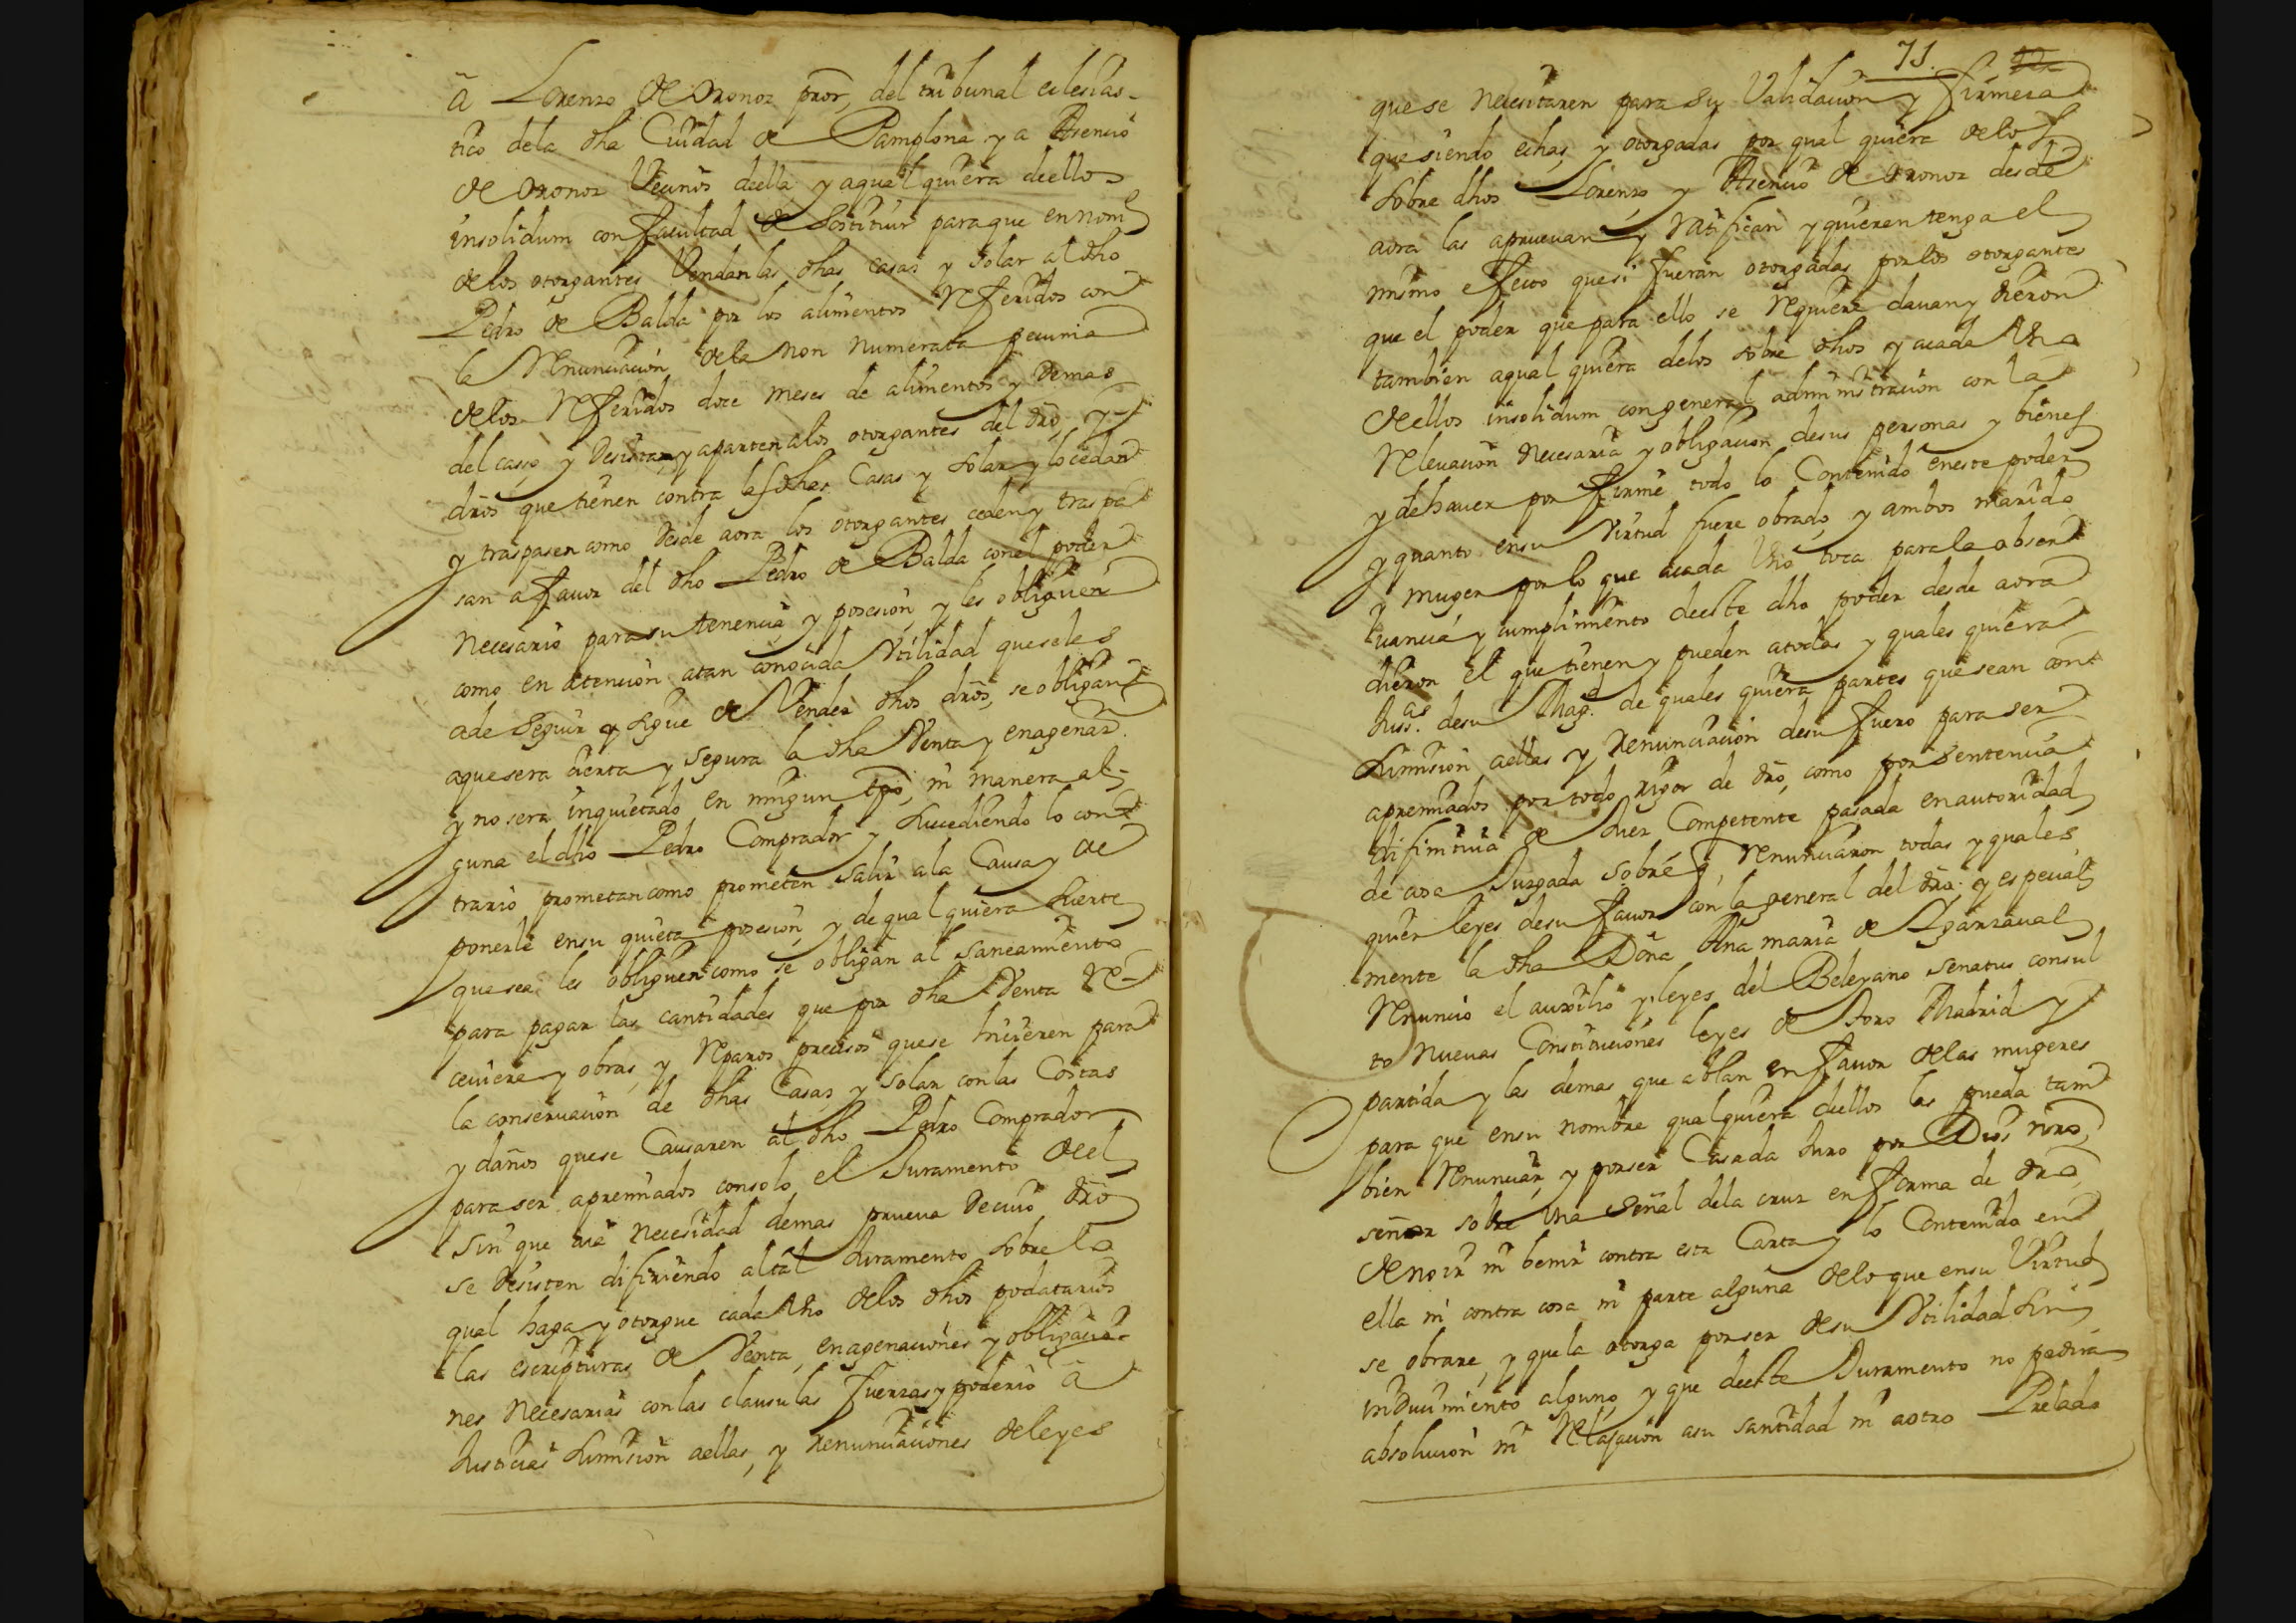 a Lorenzo de Oronoz pror, del tribunal eclesias-
tico dela dha Ciudad de Pamplona y a Asencio
de Oronoz Vecinos della y aqual quiera dellos
insolidum con facultad de sostituir paraque en nom
delos otorgantes Vendan las dhas casas y solar al dho
Pedro de Balda por los alimentos Referidos con
la Renunciacion dela non numerata pecunia
delos Referidos doce meses de alimentos y demas
del casso, y desistan y aparten alos otorgantes del dro, y
dros que tienen contra las dhas Casas y solar y lo cedan
y traspasen como desde aora los otorgantes ceden y traspa
san a favor del dho Pedro de Balda con el poder
necesario para su tenencia y posesion, y les obliguen
como en atencion atan conocida Utilidad queseles
ade seguir y sigue de Vender dhos dros, se obligan
aquesera cierta y segura la dha Venta y enagenaz.
y no sera inquietado en ningun tpo, ni manera al-
guna el dho Pedro Comprador y sucediendo lo con
trario prometan como prometen salir ala Causa y de
ponerle ensu quieta posesion y de qual quiera suerte
quesea les obliguen como se obligan al saneamiento
para pagar las cantidades que por dha Venta Re-
ceviere y obras, y Reparos precisos quese hicieren para
la conservacion de dhas Casas y solar con las Costas
y daños quese Causaren al dho Pedro Comprador
para ser apremiados consolo el Juramento deel
sin que aia necesidad demas prueva decuio dro
se desisten difiriendo altal Juramento sobre la
qual haga y otorgue cada Uno delos dhos podatarios
las escripturas de Venta, enagenaciones y obligacio-
nes necesarias con las clausulas fuerzas y poderio a
Justicias sumision aellas, y renunciaciones deleyes
71.
que se necesitaren para su Validacion y firmeza
que siendo echas, y otorgadas por qual quiera delos
sobre dhos Lorenzo y Asencio de Oronoz desde
aora las apruevan y ratifican y quieren tenga el
mismo efecto quesi fueran otorgadas por los otorgantes
que el poder que para ello se Requiere davan y dieron
tambien aqual quiera delos sobre dhos y acada Uno
dellos insolidum con general administracion con la
Relevacion necesaria y obligacion desus personas y bienes
y dehaver por firme todo lo Contenido eneste poder
y quanto ensu Virtud fuere obrado, y ambos marido
y muger por lo que acada Uno toca para la obser
vancia y cumplimiento deeste dho poder desde aora
dieron el que tienen y pueden atodas y quales quiera
Juss.as desu Mag.d de quales quiera partes que sean con
sumision aellas y renunciacion desu fuero para ser
apremiados por todo rigor de dro, como por sentencia
difinitiva de Juez Competente pasada en autoridad
de cosa Juzgada sobre q, renunciaron todas y quales
quier leyes desu favor con la general del dro. y especial
mente la dha Doña Ana maria de Ygarzaval
Renuncio el auxilio y leyes del Beleyano senatus consul
to nuevas Constituciones leyes de toro Madrid y
partida y las demas que ablan en favor delas mugeres
para que ensu nombre qualquiera dellos las pueda tam
bien Renunciar, y porser Casada Juro por Dios nro,
señor sobre Una señal dela cruz en forma de dro,
de no ir ni benir contra esta Carta y lo Contenido en
ella ni contra cosa ni parte alguna delo que ensu Virtud
se obrare, y que la otorga por ser desu Utilidad sin
inducimiento alguno, y que deeste Juramento no pedira
absolucion ni Relajacion asu santidad ni aotro Prelado